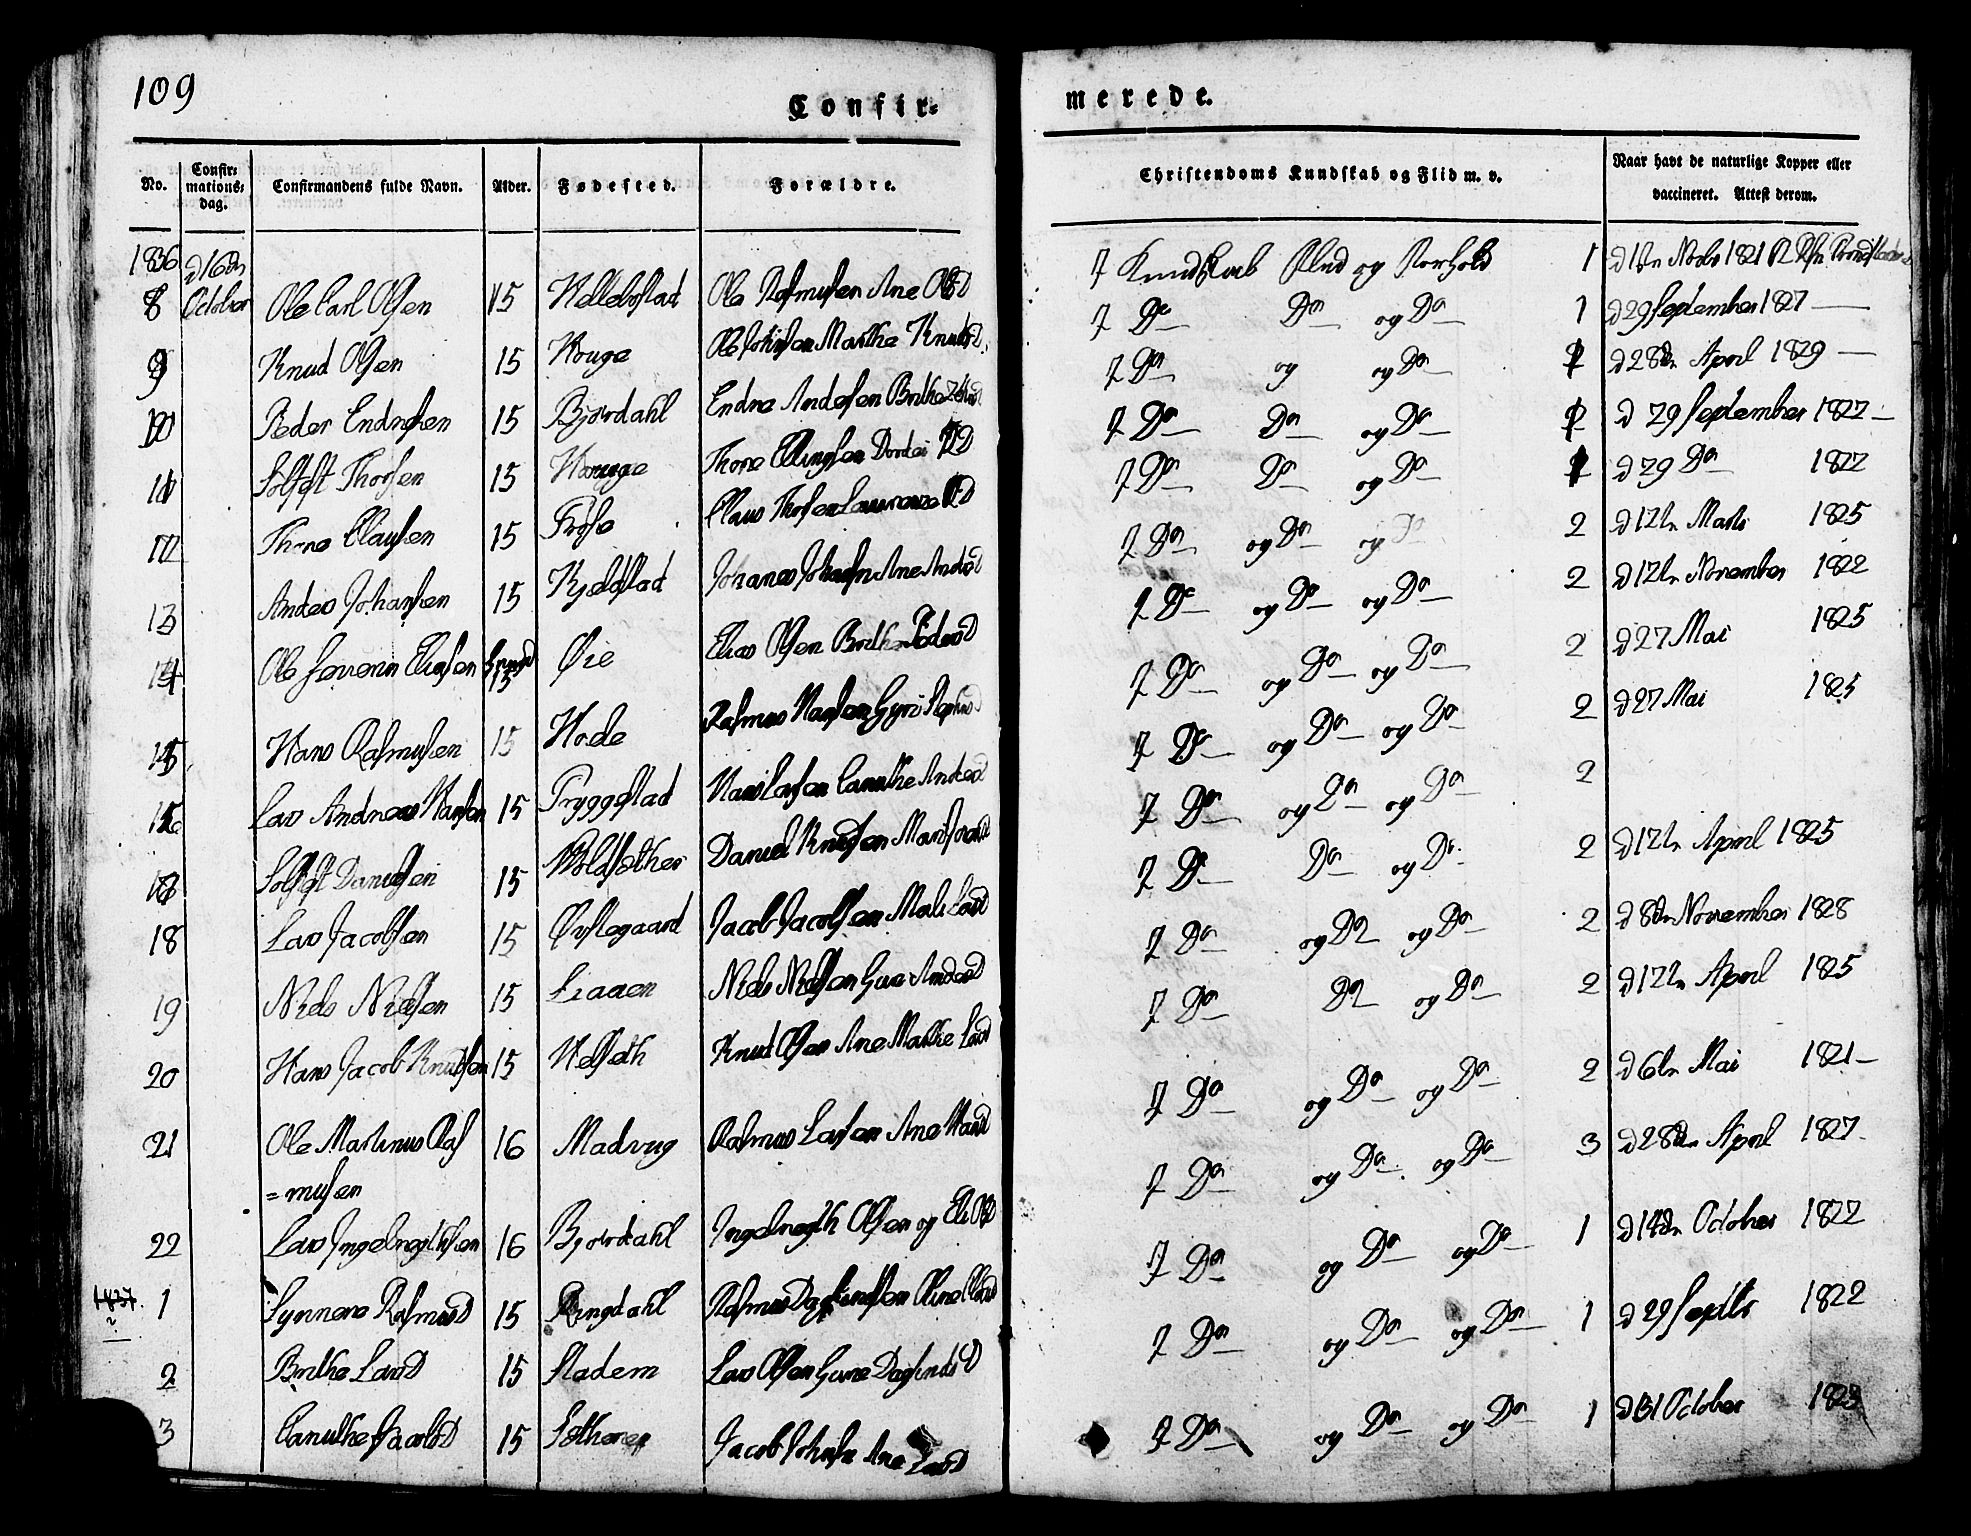 109
Confir=
merede.
No.
Confir=
mations=
dag.
Confirmandens fulde Navn.
Alder.
Fødested.
Forældre.
Christendoms Kundskab og Flid m. v.
Naar havt de naturlige Kopper eller
vaccineret. Attest derom.
1836 d 16de
8 October Ole Carl Olsen 15 Hellebostad Ole Rasmusen Ane OlsD 7 Kundskab Flid og Forhold 1
9 Knud Olsen 15 Houge Marthe KnudsD 7 Do Do og Do 1 d 29 September 1827
10 Peder Endresen 15 Bjørdahl Endre Andersen Brithe 7 Do og og Do d 28de April 1829
11 Thorsen 15 Houge Thore Ellingsen Dordei 7 Do Do og Do d 29 September 1827
12 Thore Clausen 15 Claus Thorsen Laurenze 7 Do Do og Do d 29 Do 1822
13 Andes Johansen 15 Kjeldstad Ane AndesD 7 Do og Do og Do 2 d 12te Marts 1825
14 Ole Severin Eliasen 15 Øie Elias Olsen Brithe PedersD 7 Do og Do og Do 2 d 12te November 1822
15 Hans Rasmusen 15 Hode Rasmus Hansen Gyri 7 Do og Do og Do 2 d 27 Mai 1825
Lars Andreas Hansen 15 Tryggestad Hans Larsen Canuthe AndesD 7 Do og Do og Do 2 d 27 Mai 1825
Danielsen 15 Daniel Knudsen 7 Do og Do og Do 2
18 Lars Jacobsen 15 Øvstegaard Jacob Jacobsen Mali LarsD 7 Do Do og Do 2 d 12te April 1825
19 Niels Nielsen 15 Liaaen Niels Nielsen AndersD 7 Do og Do og Do 2 d 8de November 1828
20 Hans Jacob Knudsen 15 Velseth Knud Olsen Ane Marthe LarsD 7 Do Do og Do 2 d 12te April 1825
21 Ole Martinus Ras
=musen 16 Madvug Rasmus Larsen Ane HansD 7 Do og Do og Do 2 d 6te Mai 1821
22 Lars Ingebregthsen 16 Bjørdahl Ingebregth Olsen og Eli OlsD 7 Do og Do og Do 3 d 28de April 1827
1837. 1 Synneve RasmusD 15 Ringdahl Rasmus Dagfindsen Oline 7 Do og Do og Do 1 d 14de October 1822
2 Brithe LarsD 15 Stadem Lars Olsen DagfindsD 7 Do og Do og Do 1 d 29 Septbr 1822
3 Canuthe JacobsD 15 Jacob Ane LarsD 7 Do og Do og Do 1 d 31 October 1823